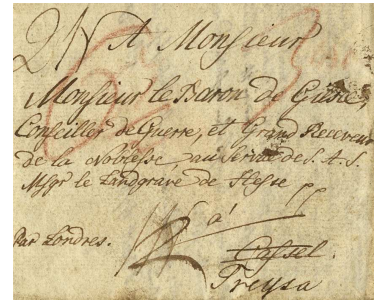 A Monsieur
Monsieur le Baron de
Conseiller de Guerre, et Grand Receveur
de la Noblesse au Service de S. A. S.
Msgr le Landgrave de Hesse
à
Par Londres.
Cassel
Treysa